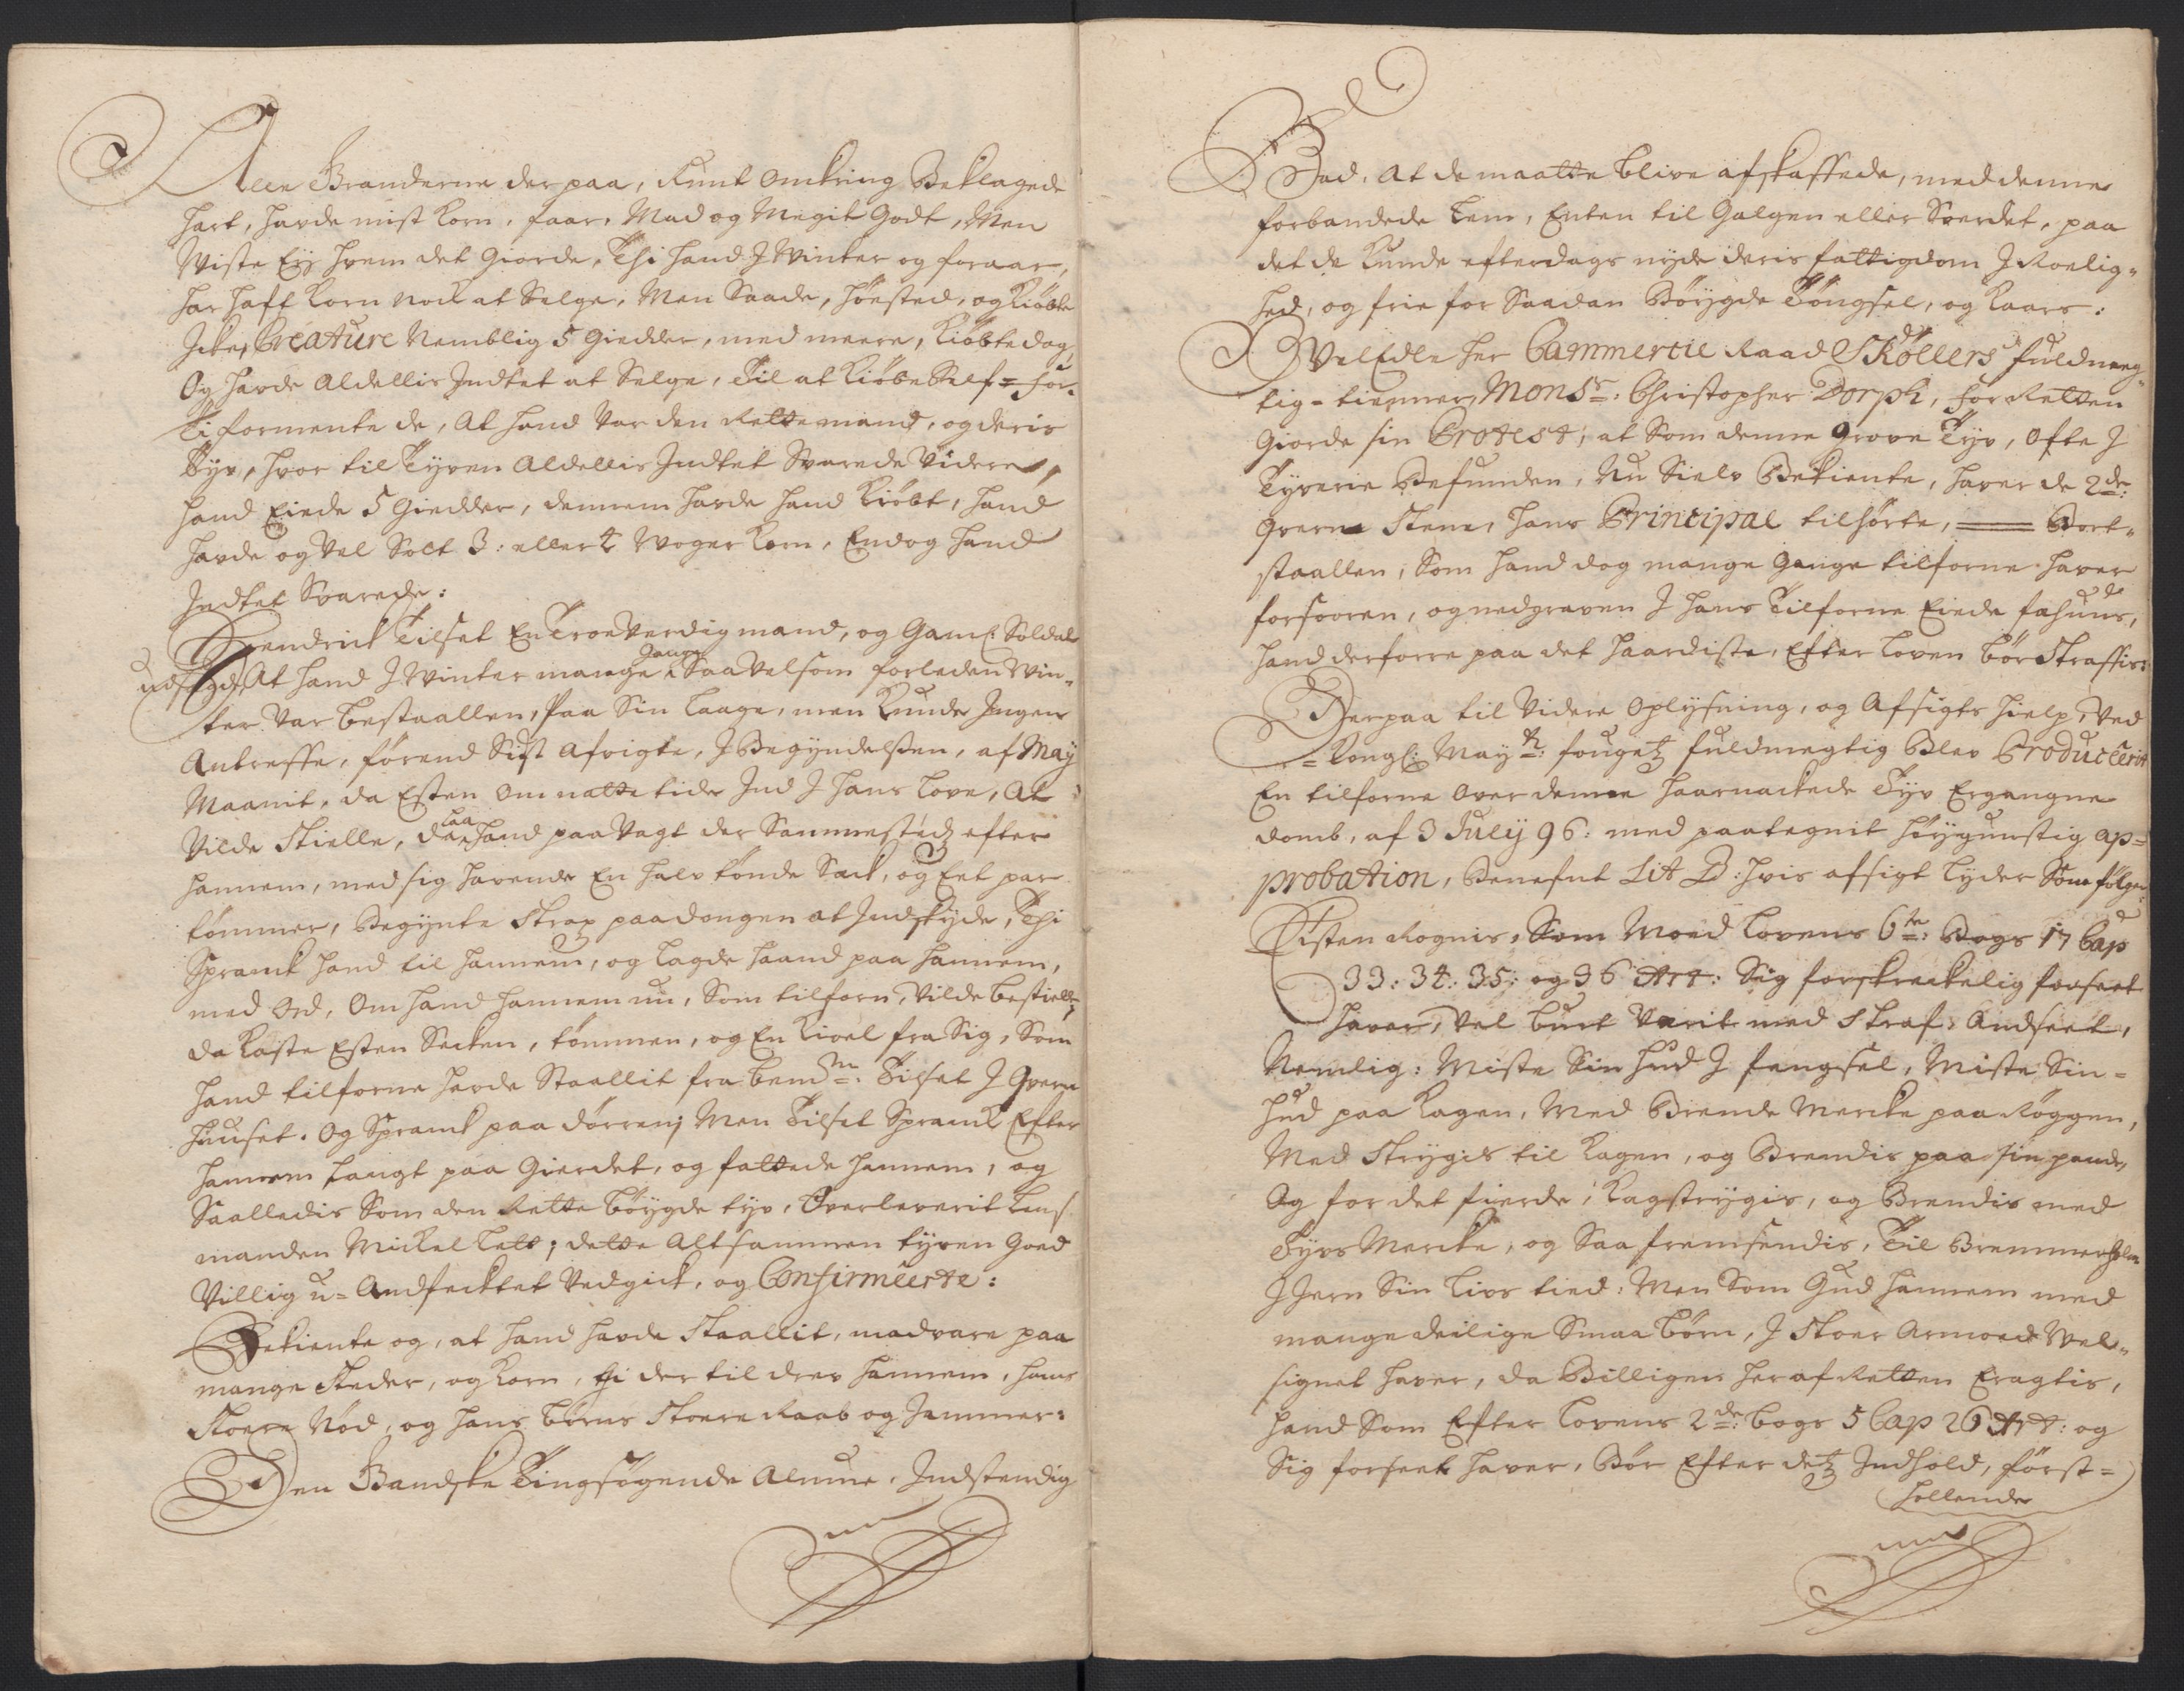 Alle Granderne der paa, Rundt omkring Beklagede
hart, hafde mist Korn, faar, Mad og Megit Godt, Men
Wiste Eÿ hvem det Giorde, Thi hand J Winter og foraar,
har haft Korn nock at Selge, Men Saade, høsted, og Kiøbte
Jcke, Creature Nemblig 5 Giedder, med meere, Kiøbte dog
Og hafde Aldellis Jndtet at Selge, Til at Kiøbe Self = for.
Ti formente de, At hand var den Rette mand, og deris
Tÿv, hvor til Tÿven Aldellis Jndtet Svarede videre,
hand Eiede 5 Giedder, dennem hafde hand Kiøbt, hand
hafde og vel Solt 3: eller 4 Woger Korn, Endog hand
Jndtet Svarede:
Hendrick Tilset En Troeverdig mand, og Gaml: Soldat
udsagde, At hand J Winter mange gange, Saavelsom forleden Win-
ter var bestaallen, Paa Sin Laage, men Kunde Jngen
Antreffe, førend Sist Afvigte, J Begÿndelssen, af Maÿ
Maanit, da Esten om natte tide Jnd J hans Love, At
Vilde Stielle, da laa hand paa Vagt der Sammestedz efter
hannem, med sig havende En halv tønde Sæck, og Eet par
tømmer, Begÿnte Strax paa dongen at Jndskÿde, Thi
Spranck hand til hannem, og lagde haand paa hannem,
med ord, Om hand hannem nu, Som tilforn, vilde bestielle,
da Kaste Esten Secken, tømmen, og En Kivel fra Sig, Som
hand tilforne hafde Staallit fra bem.te: Tilset J Qvern
huuset. Og Spranck paa dørren; Men Tilset Spranck Efter
hannem langt paa Gierdet, og fattede hannem, og
Saalledis Som den Rette bøÿgde tÿv, Overleverit Lens
manden Mickel Lell; dette Altsammen tÿven Goed
Villig u-Andfecktet vedgick, og Confirmeerte:
Bekiente og, at hand hafde Staallit, madvare paa
mange Steder, og Korn, thi der til drev hannem, hans
Stoere Nød, og hans børns Stoere Raab og Jammer:
Den Gandske Tingsøgende Almue, Jndstendig
Bad, At de maatte blive afskaffede, med denne
forbandede Lem, Enten til Galgen eller Sverdet, paa
det de Kunde efterdags nÿde deris fattigdom J Roelig-
hed, og frie for Saadan Bøÿgde Tøngsel, og Kaars:
VelEdle her Cammertie Raad Skøllers fuldmeg-
tig-tienner, Monsr: Christopher Dorph, for Retten
Giorde sin Protest, at Som denne Grove Tÿv, Ofte J
Tÿverie Befunden, Nu Sielv Bekiente, haver de 2de:
Qverne Steene, hans Principal tilhørte, Bort-
staallen, Som hand dog mange Gange tilforne haver
forsvoren, og nedgraven J hans Tilforne Eiede fæhuus,
hand derforre paa det haardiste, Efter Loven bør Straffis:
Derpaa til videre Oplÿsning, og Afsigts hielp, ved
Kongl: Maÿ.tz: fougetz fuldmegtig blev Producerit
En tilforne Over denne haarnackede Tÿv Ergangne
domb, af 3 Julÿ 96: med paategnit høÿgunstig ap-
probation, Benefnt Lit B: hvis afsigt lyder Som følger
Esten Rognis, Som Moed Lovens 6te: Bogs 17 Cap
33: 34: 35: og 36 Art: Sig forskreckelig forseet
haver, Vel burt Værit med Straf Andseet,
Nemlig: Miste Sin hud J fengsel, Miste Sin-
hud paa Kagen, Med Brende Mercke paa Røggen,
Med Strÿgis til Kagen, og Brendis paa sin pande,
Og for det fierde, Kagstrÿgis, og Brendis med
Tÿvs Mercke, og Saa fremsendis, Til Bremmerholm
J Jern Sin Livs tied: Men Som Gud hannem med
mange deilige Smaa børn, J Stoer Armoed Wel-
signet haver, da Billigen her af Retten Eragtis,
hand Som Efter Lovens 2de: bogs 5 Cap 26 Art: og
Sig forseet haver, Bør Efter detz Jndhold, først-
hollende